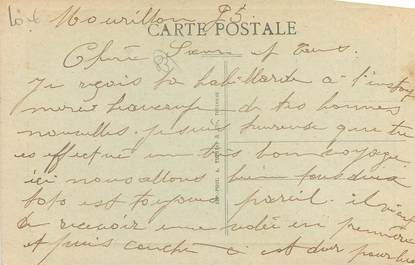 Mourillon 25.
CARTE POSTALE
Chère Sœur et tous.
Je reçois ta babillarde à l'instant
merci beaucoup de tes bonnes
nouvelles. je suis heureuse que tu
es effectué un très bon voyage
ici nous allons bien tous deux
toto est toujours pareil. il vient
de recevoir une volée en première
et puis couché c'est dur pour lui